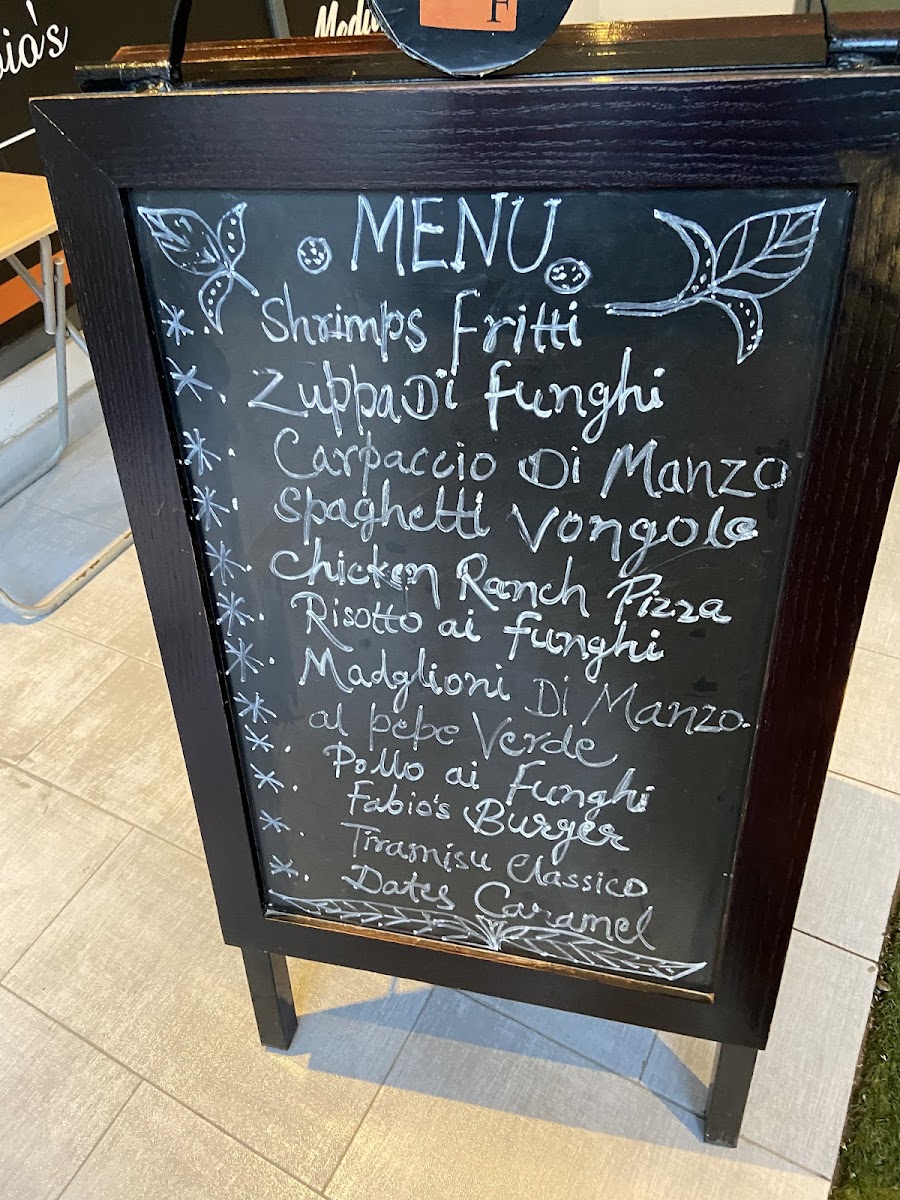 io's
F
MENU
* Shrimps Fritti
* Zuppa Di Funghi
* Carpaccio Di Manzo
* Spaghetti Vongole
* Chicken Ranch Pizza
* Risotto ai funghi
* Madglioni Di Manzo
* al pepe Verde
* Pollo ai Funghi
* Fabio's Burger
* Tiramisu Classico
* Dates Caramel